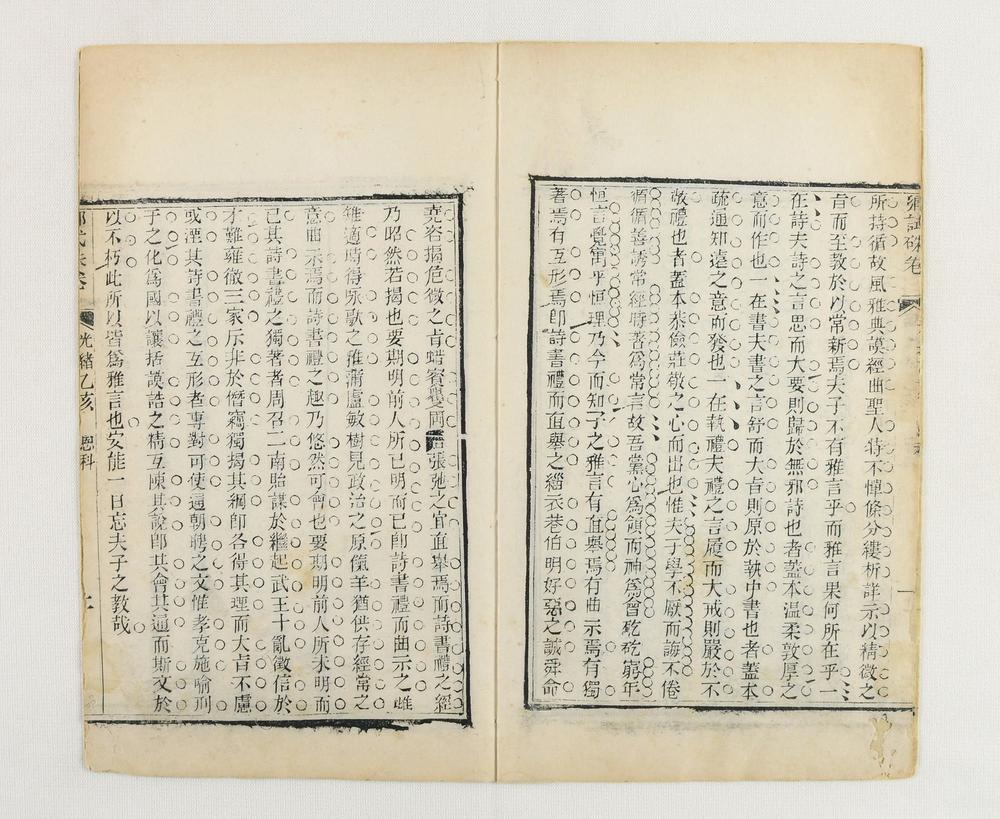 鄉試硃卷
所持循故風雅典謨經曲聖人特不憚條分縷析詳示以精微之
旨而至教於以常新焉夫子不有雅言乎而雅言果何所在乎一
在詩夫詩之言思而大要則歸於無邪詩也者蓋本温柔敦厚之
意而作也一在書夫書之言舒而大旨則原於執中書也者蓋本
疏通知遠之意而發也一在執禮夫禮之言履而大戒則嚴於不
敬禮也者蓋本恭儉莊敬之心而出也惟夫子學不厭而誨不倦
循循善誘常經時著為常言故吾黨心為領而神為會矻矻窮年
恒言覺寓乎恒理乃今而知子之雅言有直舉焉有曲示焉有獨
著焉有互形焉即詩書禮而直舉之緇衣巷伯明好惡之誠舜命
堯咨揭危微之旨蜡賓覺兩張弛之宜直舉焉而詩書禮之經
乃昭然若揭也要期明前人所已明而已即詩書禮而曲示之雌
雉適時得咏歌之雅蒲盧敏樹見政治之原餼羊猶供存經常之
意曲示焉而詩書禮之趣乃悠然可會也要期明前人所未明而
已其詩書禮之獨著者周召二南貽謀於繼起武王十亂徵信於
才難雍徹三家斥非於僭竊獨揭其綱即各得其理而大旨不慮
或湮其詩書禮之互形者專對可使通朝聘之文惟孝克施喻刑
于之化為國以讓括謨誥之精互陳其說即其會其通而斯文於
以不朽此所以皆為雅言也安能一日忘夫子之教哉
光緒乙亥 恩科